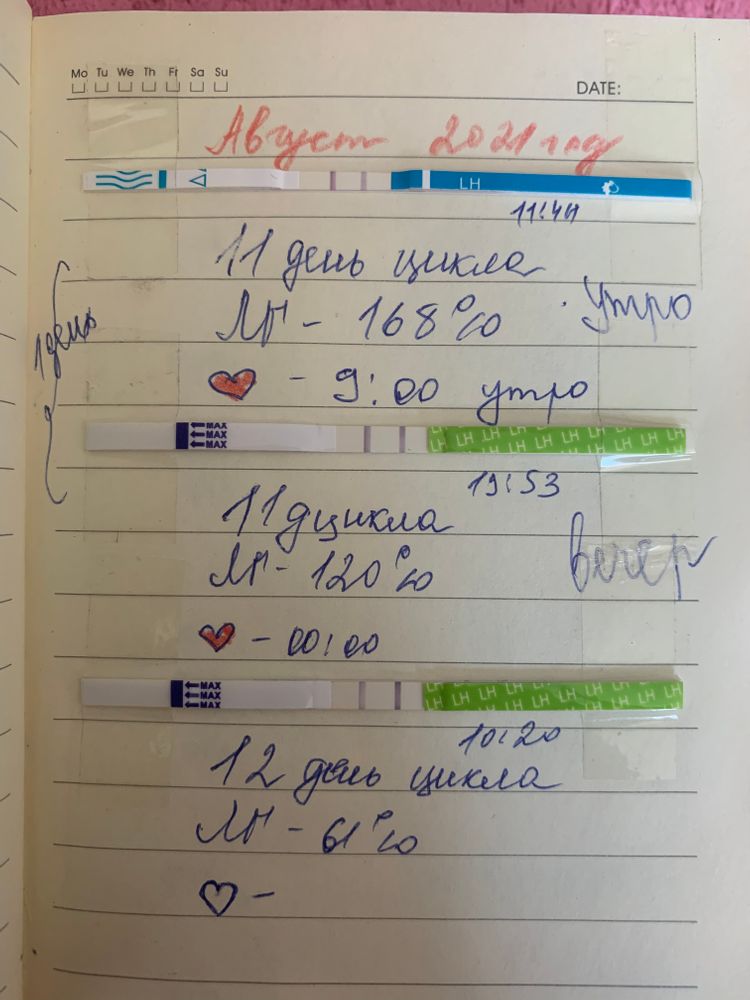 Mo Tu We Th Fr Sa Su
DATE:
Август 2021 год
LH
11:44
11 день цикла
ЛГ - 168% утро
1 день
- 9:00 утро
MAX
MAX
MAX
LH LH LH LH LH LH LH LH LH LH
19:53
11 дцикла
ЛГ - 120% вечер
- 00:00
MAX
MAX
MAX
LH LH LH LH LH LH LH LH LH LH
10:20
12 день цикла
ЛГ - 61%
-